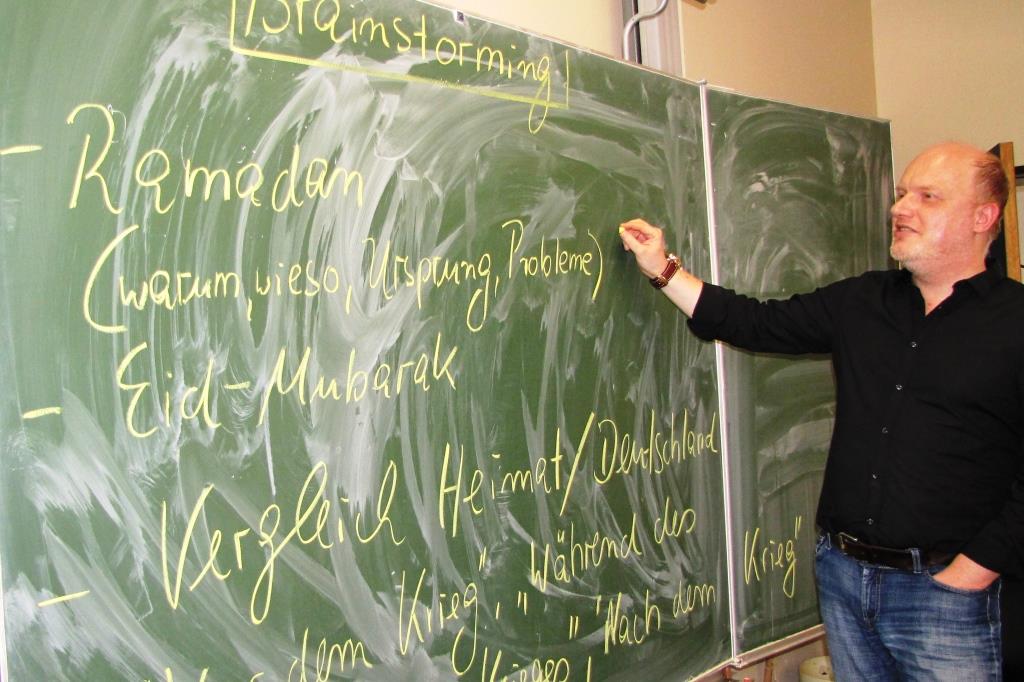 Brainstorming
- Ramadan
(warum, wieso, Ursprung, Probleme)
- Eid-Mubarak
- Vergleich Heimat/Deutschland
dem Krieg", " Während des
Krieges" " Nach dem Krieg"